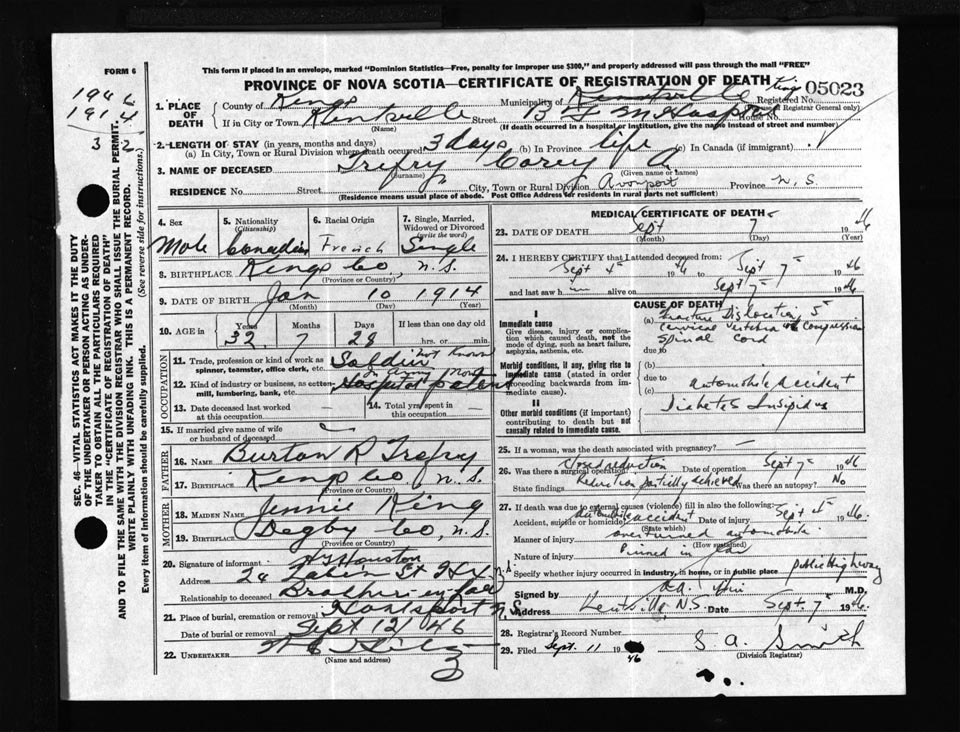 FORM 6
This form if placed in an envelope, marked "Dominion Statistics—Free, penalty for improper use $300," and properly addressed will pass through the mail "FREE"
PROVINCE OF NOVA SCOTIA—CERTIFICATE OF REGISTRATION OF DEATH
05023
1946
1914
32
1. PLACE OF DEATH
County of Kings
Municipality of Kentville Kings
Registered No.
(Registrar General only)
If in City or Town, Kentville Street
House No.
(Name) (If death occurred in a hospital or institution, give the name instead of street and number)
2. LENGTH OF STAY (in years, months and days)
(a) In City, Town or Rural Division where death occurred 3 days (b) In Province life (c) In Canada (if immigrant)
3. NAME OF DECEASED Trefry Corey A
(Surname) (Given name or names)
RESIDENCE No. Street City, Town or Rural Division Avonport Province N. S.
(Residence means usual place of abode. Post office address for residents in rural parts not sufficient)
4. Sex Male
5. Nationality (Citizenship) Canadian
6. Racial Origin French
7. Single, Married, Widowed or Divorced (write the word) Single
8. BIRTHPLACE Kings Co, N.S.
(Province or Country)
9. DATE OF BIRTH Jan 10 1914
(Month) (Day) (Year)
10. AGE in Years Months Days If less than one day old
32 7 28 hrs. or min.
OCCUPATION
11. Trade, profession or kind of work as spinner, teamster, office clerk, etc. Soldier not known
12. Kind of industry or business, as cotton-mill, lumbering, bank, etc. In Army Hospital patient
13. Date deceased last worked at this occupation
14. Total yrs. spent in this occupation
15. If married give name of wife or husband of deceased
FATHER
16. NAME Burton R Trefry
17. BIRTHPLACE Kings Co, N.S.
(Province or Country)
MOTHER
18. MAIDEN NAME Jennie King
19. BIRTHPLACE Degby Co, N.S.
(Province or Country)
20. Signature of informant Houston
Address 24 St
Relationship to deceased Brother in law
21. Place of burial, cremation or removal Hantsport N.S.
Date of burial or removal Sept 12/46
22. UNDERTAKER
(Name and address)
MEDICAL CERTIFICATE OF DEATH
23. DATE OF DEATH Sept 7 1946
(Month) (Day) (Year)
24. I HEREBY CERTIFY that I attended deceased from:
Sept 4 1946 to Sept 7 1946
and last saw h im alive on Sept 7 1946
CAUSE OF DEATH
I
Immediate cause
Give disease, injury or complication which caused death, not the mode of dying, such as heart failure, asphyxia, asthenia, etc.
(a) Fracture Dislocation 5
Cervical Vertebra Compression
Spinal Cord
due to
Morbid conditions, if any, giving rise to immediate cause (stated in order proceeding backwards from immediate cause).
(b)
due to Automobile Accident
(c)
II
Other morbid conditions (if important) contributing to death but not causally related to immediate cause.
Diabetes Insipidus
25. If a woman, was the death associated with pregnancy?
26. Was there a surgical operation? closed reduction Date of operation Sept 7 1946
State findings Reduction partially achieved Was there an autopsy? No
27. If death was due to external causes (violence) fill in also the following:
Accident, suicide or homicide? automobile accident Date of injury Sept 4 1946.
(State which)
Manner of injury overturned automobile
(How sustained)
Nature of injury Pinned in
Specify whether injury occurred in industry, in home, or in public place public highway
Signed by M.D.
Address Kentville N.S. Date Sept 7 1946.
28. Registrar's Record Number
29. Filed Sept. 11 46 S. A. Smith
(Division Registrar)
SEC. 46—VITAL STATISTICS ACT MAKES IT THE DUTY
OF THE UNDERTAKER OR PERSON ACTING AS UNDERTAKER TO OBTAIN ALL THE PARTICULARS REQUIRED
IN THE "CERTIFICATE OF REGISTRATION OF DEATH"
AND TO FILE THE SAME WITH THE DIVISION REGISTRAR WHO SHALL ISSUE THE BURIAL PERMIT.
WRITE PLAINLY WITH UNFADING INK. THIS IS A PERMANENT RECORD.
Every item of information should be carefully supplied. (See reverse side for instructions.)